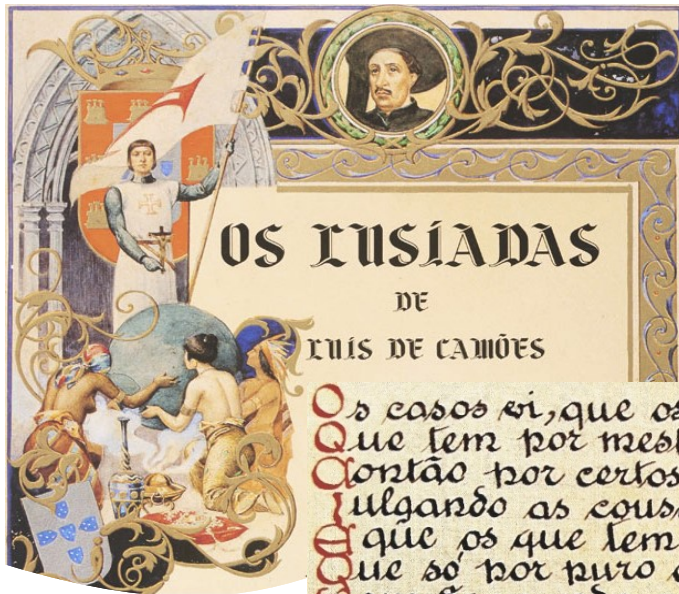 OS LUSÍADAS
DE
LUÍS DE CAMÕES
Os casos vi, que os
Que tem por mest
Contão por certos
Julgando as cous
A que os que tem
Que só por puro